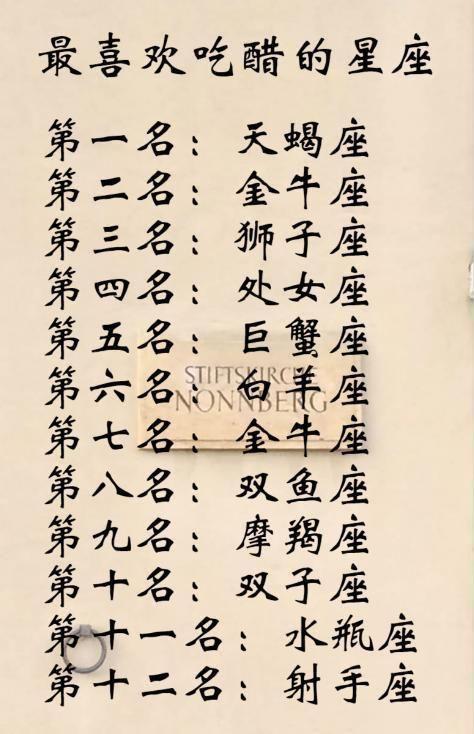 最喜欢吃醋的星座
第一名：天蝎座
第二名：金牛座
第三名：狮子座
第四名：处女座
第五名：巨蟹座
STIFTSKIRCHE
第六名：白羊座
NONNBERG
第七名：金牛座
第八名：双鱼座
第九名：摩羯座
第十名：双子座
第十一名：水瓶座
第十二名：射手座